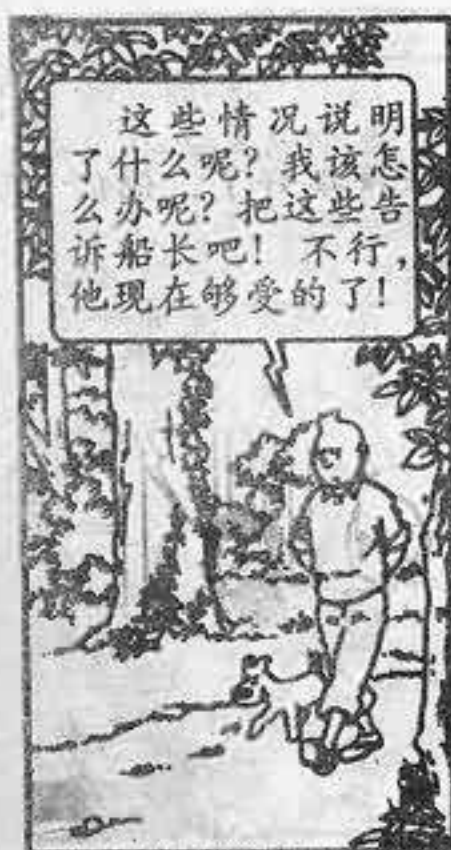 这些情况说明
了什么呢？我该怎
么办呢？把这些告
诉船长吧！不行，
他现在够受的了！